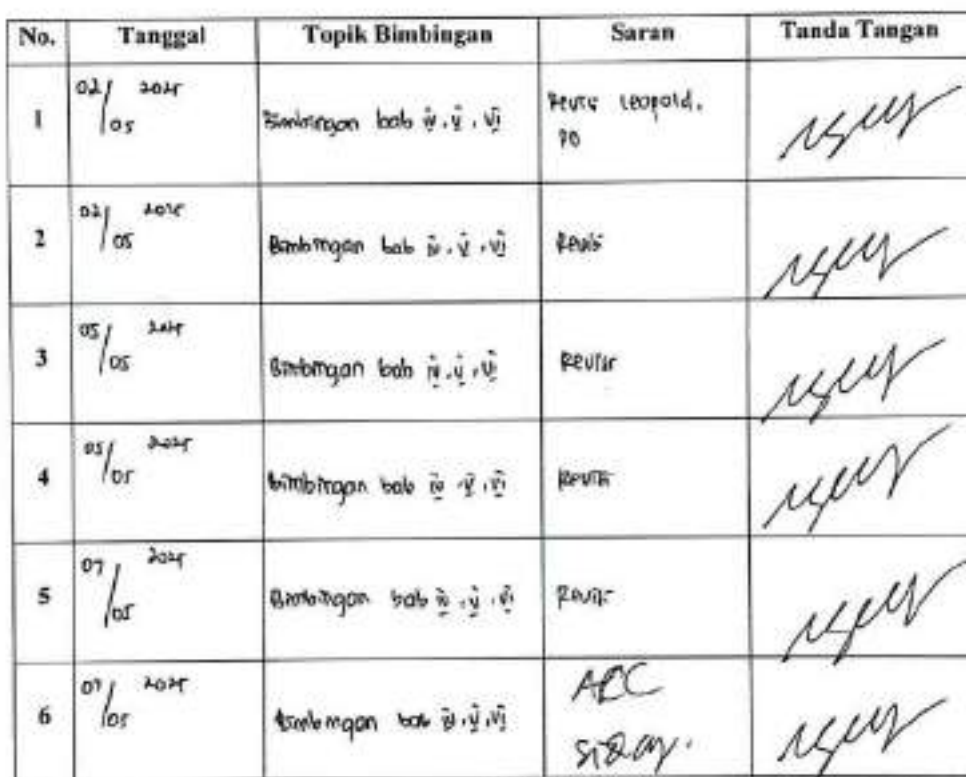 No. Tanggal Topik Bimbingan Saran Tanda Tangan
1 02/05 2025 Bimbingan bab IV, V, VI Revisi Leopold,
PD
2 02/05 2025 Bimbingan bab IV, V, VI Revisi
3 05/05 2025 Bimbingan bab IV, V, VI Revisi
4 05/05 2025 Bimbingan bab IV, V, VI Revisi
5 07/05 2025 Bimbingan bab IV, V, VI Revisi
6 07/05 2025 Bimbingan bab IV, V, VI ACC